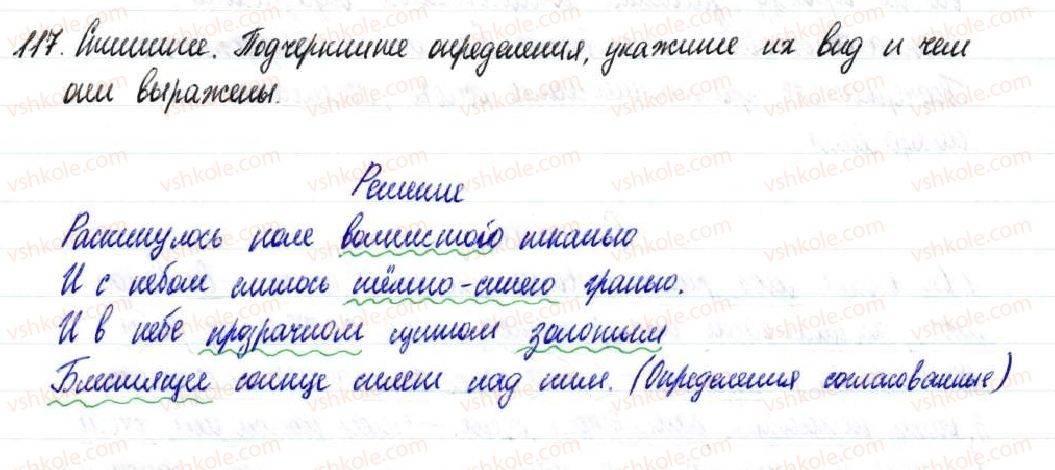 117. Спишите. Подчеркните определения, укажите их вид и чем
они выражены.
Решение
Раскинулось поле волнистого тканью
И с небом слилось тёмно-синею гранью.
И в небе прозрачном щитом золотым
Блестящее солнце сияет над ним. (Определения согласованные)
vshkole.com